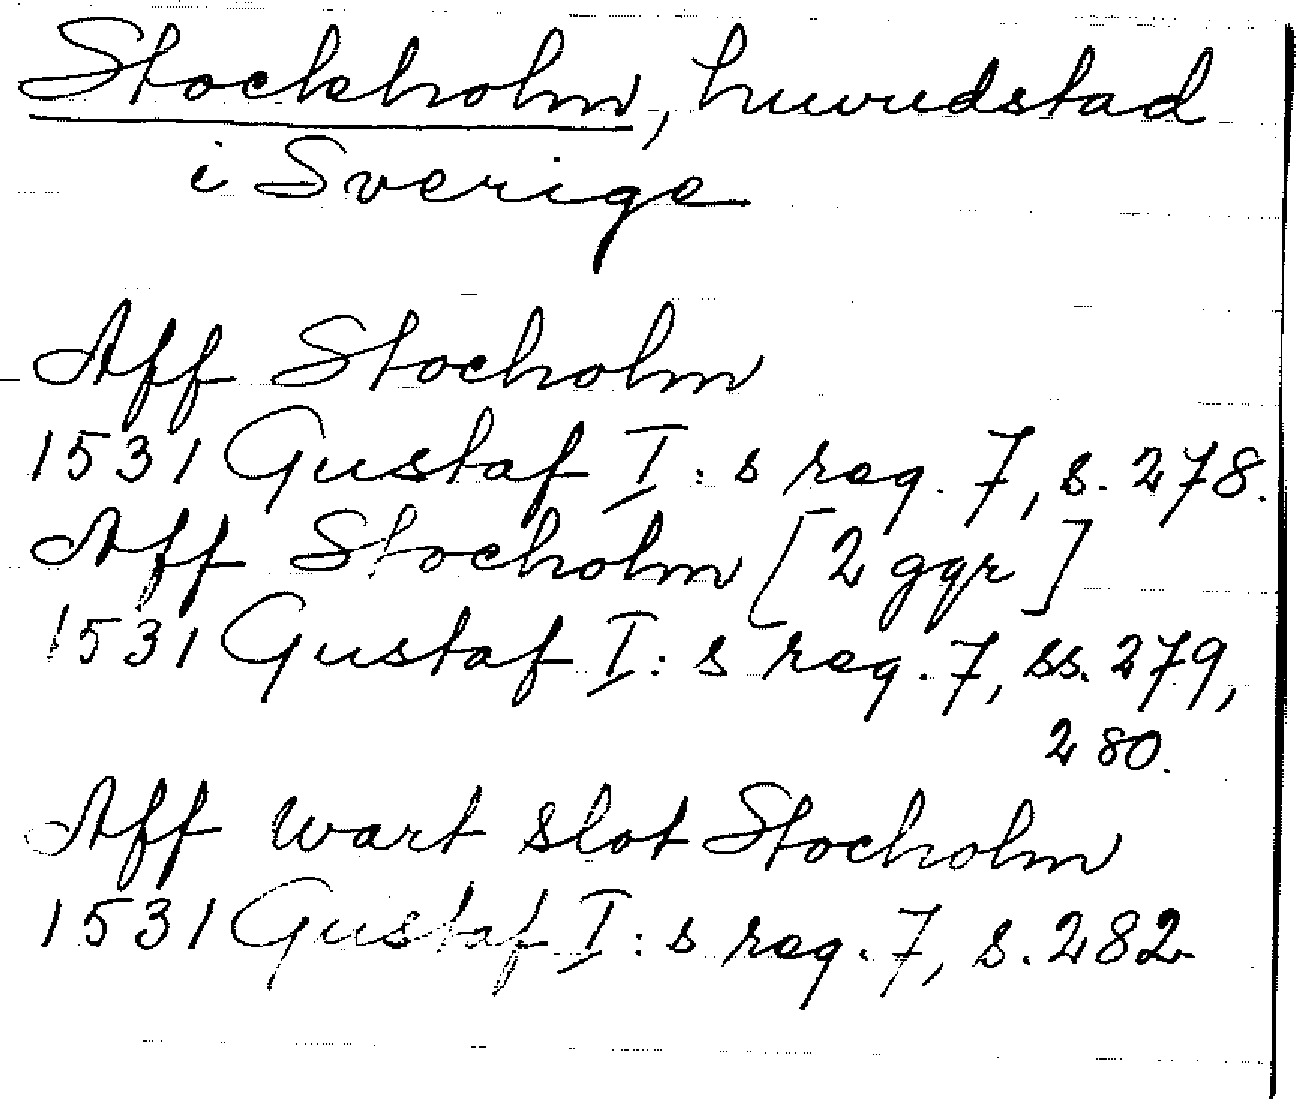 Stockholm, huvudstad
i Sverige
Aff Stocholm
1531 Gustaf I:s reg. 7, s. 278.
Aff Stocholm [2 ggr]
1531 Gustaf I:s reg. 7, ss. 279,
280.
Aff wart slot Stocholm
1531 Gustaf I:s reg. 7, s. 282